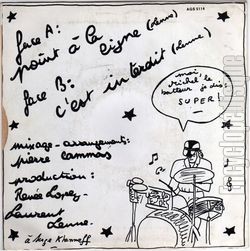 AGS 5114
face A:
point à la ligne (Lenne)
face B:
c'est interdit (Lenne)
moi,
michel le
batteur je dis:
SUPER!
mixage-arrangements:
pierre cammas
production:
Renée Lopez-
Laurent
Lenne.
à Serge